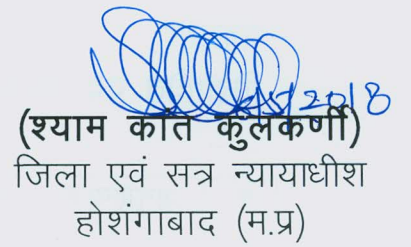 2018
(श्याम कांत कुलकर्णी)
जिला एवं सत्र न्यायाधीश
होशंगाबाद (म.प्र)